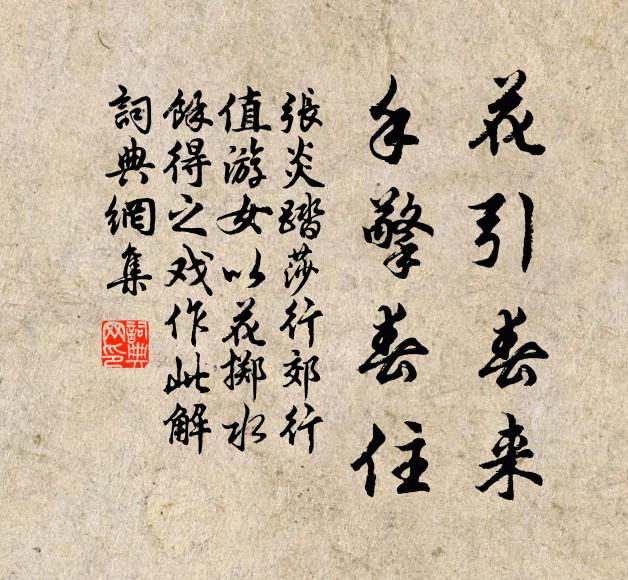 花引春来
手擎春住
張炎踏莎行郊行
值游女以花掷水
餘得之戏作此解
詞典網集
詞典網印